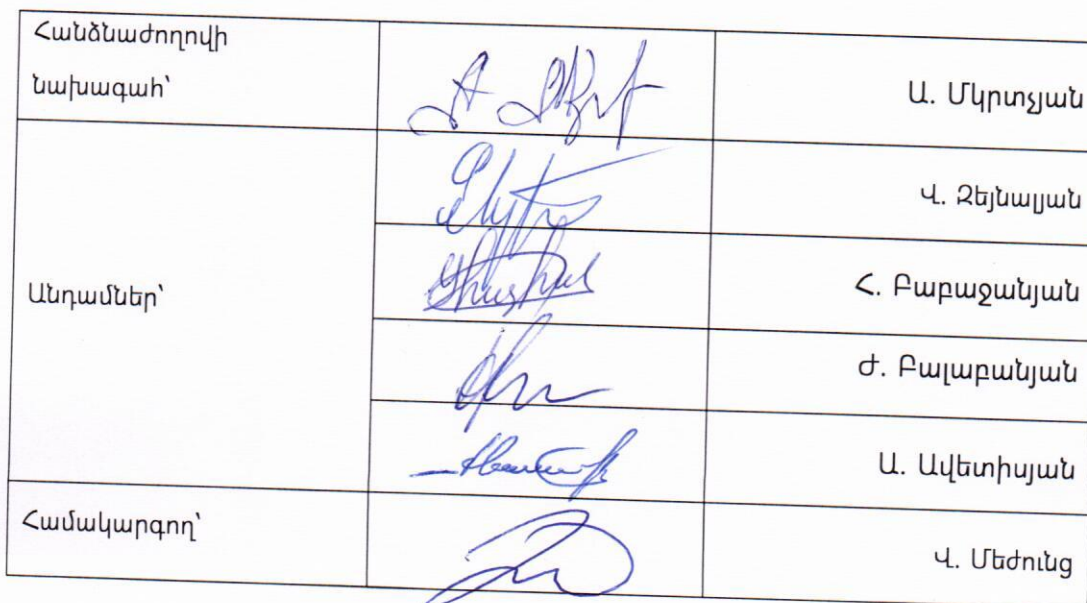 Հանձնաժողովի
նախագահ՝
Ա. Մկրտչյան
Անդամներ՝
Վ. Զեյնալյան
Հ. Բաբաջանյան
Ժ. Բալաբանյան
Ա. Ավետիսյան
Համակարգող՝
Վ. Մեժունց